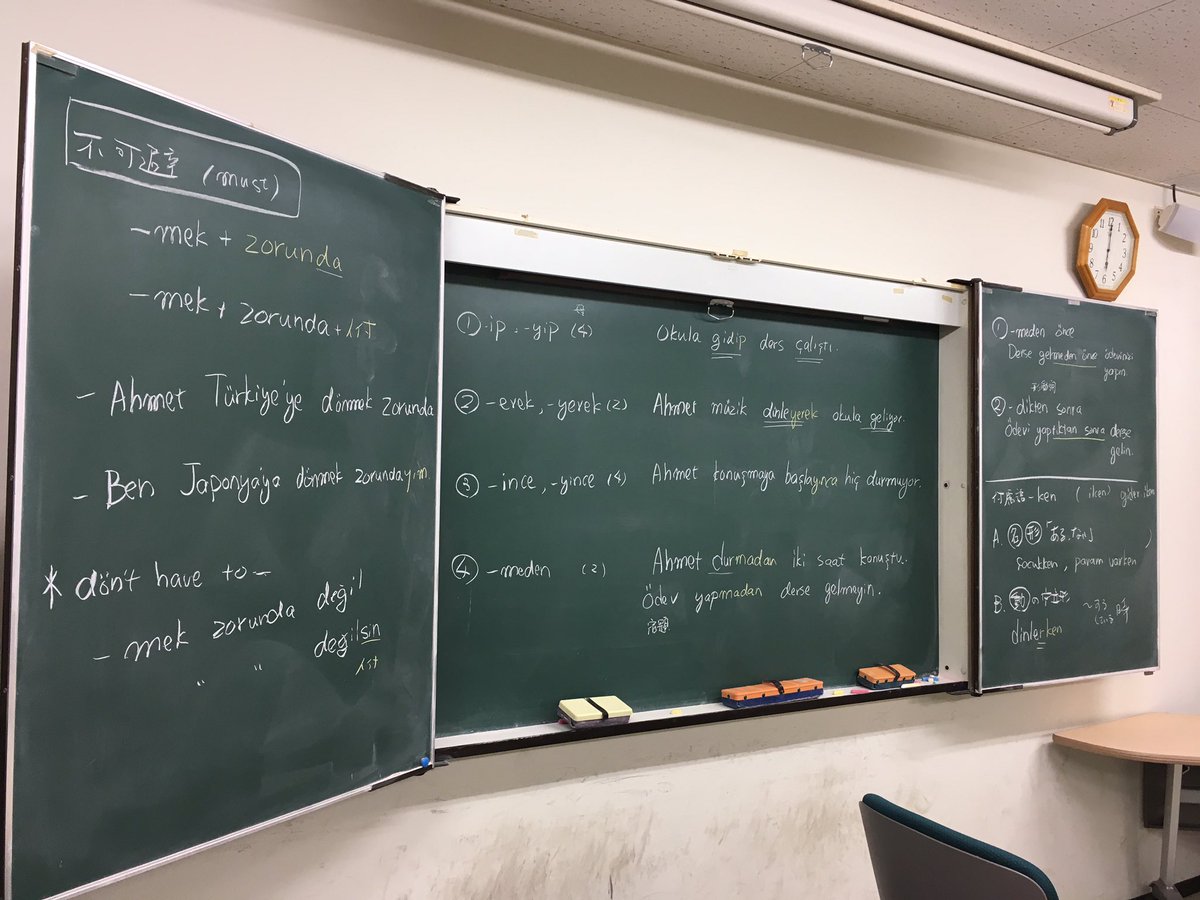 不可避 (must)
-mek + zorunda
-mek + zorunda + 人称
- Ahmet Türkiye'ye dönmek zorunda
- Ben Japonya'ya dönmek zorundayım.
* dön't have to -
- mek zorunda değil
" " değilsin
人称
① -ip, -yip (4) Okula gidip ders çalıştı.
② -erek, -yerek (2) Ahmet müzik dinleyerek okula geliyor.
③ -ince, -yince (4) Ahmet konuşmaya başlayınca hiç durmuyor.
④ -meden (2) Ahmet durmadan iki saat konuştu.
Ödev yapmadan derse gelmeyin.
宿題
① -meden önce
Derse gelmeden önce ödevinizi
yapın.
② -dikten sonra
Ödevi yaptıktan sonra derse
gelin.
-ken (iken) giden iken
A. 名 形 「ある、ない」
Çocukken, param varken
B. 動の
~する
している 時
dinlerken
12
11
1
10
2
9
3
8
4
7
5
6